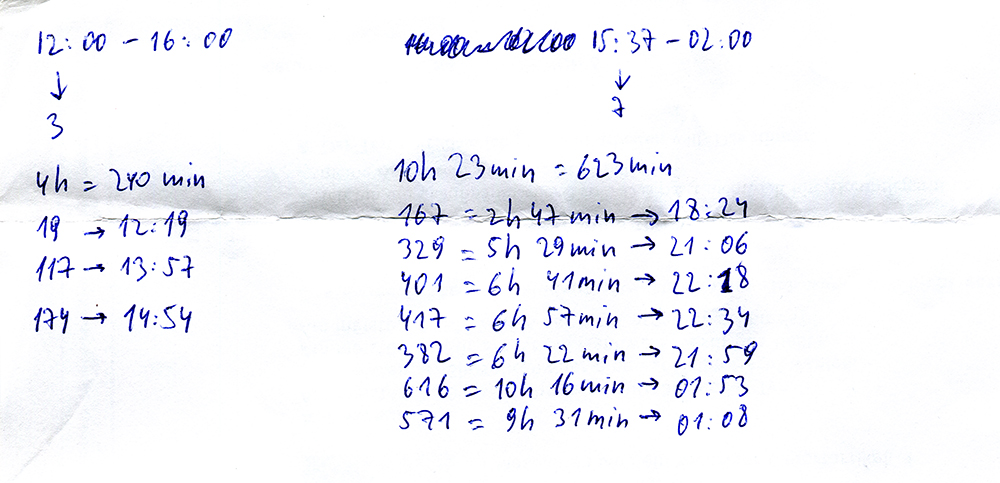 12:00 - 16:00
↓
3
4h = 240 min
19 → 12:19
117 → 13:57
174 → 14:54
15:37 - 02:00
↓
7
10h 23min = 623min
167 = 2h 47min → 18:24
329 = 5h 29min → 21:06
401 = 6h 41min → 22:18
417 = 6h 57min → 22:34
382 = 6h 22min → 21:59
616 = 10h 16min → 01:53
571 = 9h 31min → 01:08